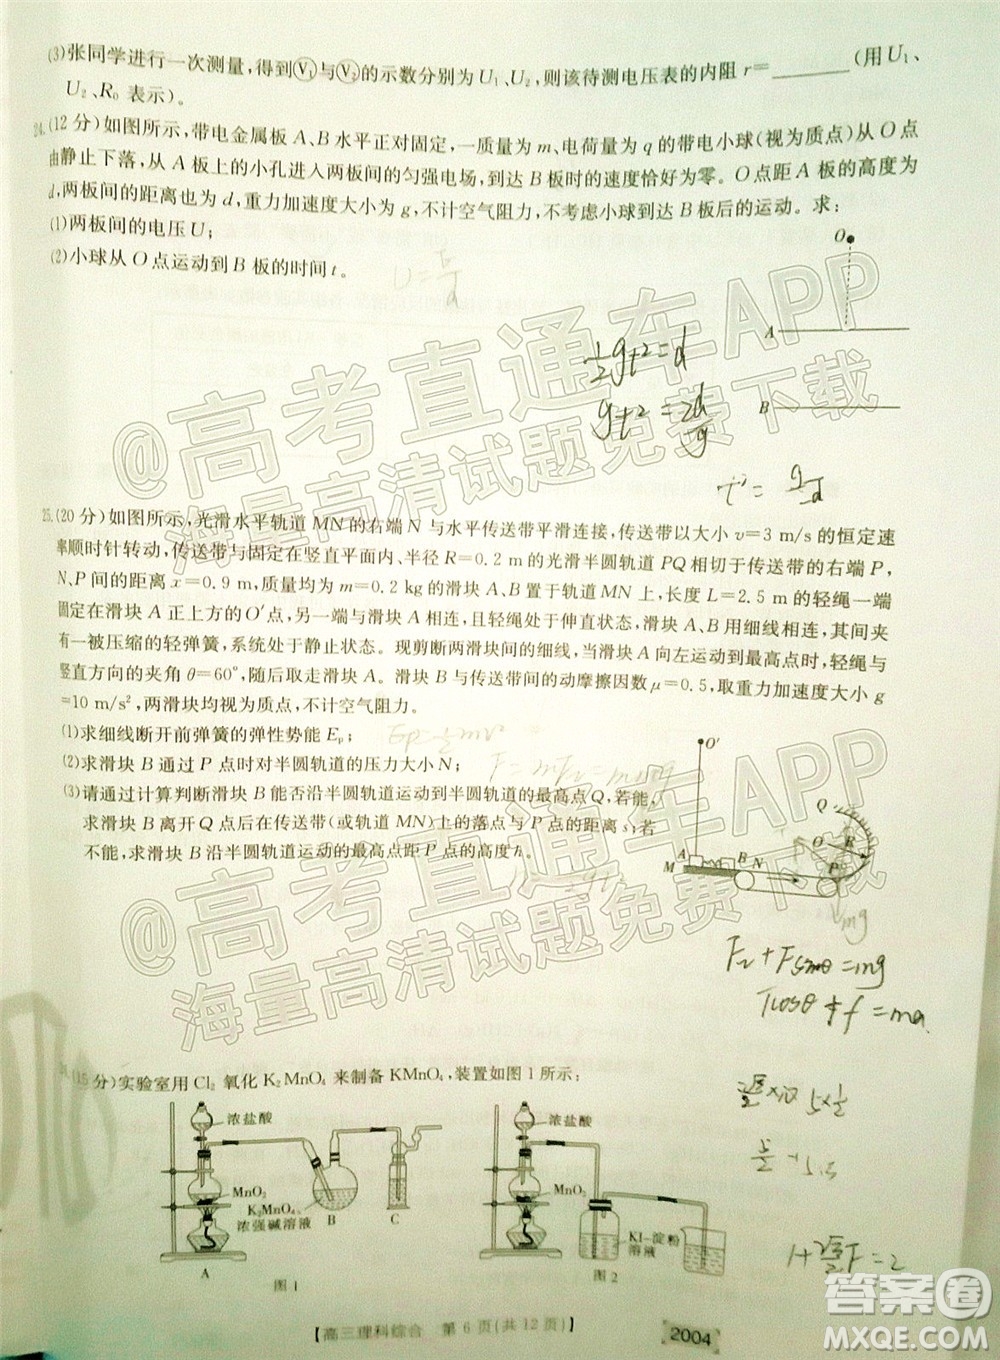 (3)张同学进行一次测量,得到V₁与V₂的示数分别为U₁、U₂,则该待测电压表的内阻r=________(用U₁、
U₂、R₀表示)。
24.(12分)如图所示,带电金属板A、B水平正对固定,一质量为m、电荷量为q的带电小球(视为质点)从O点
由静止下落,从A板上的小孔进入两板间的匀强电场,到达B板时的速度恰好为零。O点距A板的高度为
d,两板间的距离也为d,重力加速度大小为g,不计空气阻力,不考虑小球到达B板后的运动。求:
(1)两板间的电压U;
(2)小球从O点运动到B板的时间t。
O
A
B
½gt²=d
25.(20分)如图所示,光滑水平轨道MN的右端N与水平传送带平滑连接,传送带以大小v=3 m/s的恒定速
率顺时针转动,传送带与固定在竖直平面内、半径R=0.2 m的光滑半圆轨道PQ相切于传送带的右端P,
N、P间的距离x=0.9 m,质量均为m=0.2 kg的滑块A、B置于轨道MN上,长度L=2.5 m的轻绳一端
固定在滑块A正上方的O′点,另一端与滑块A相连,且轻绳处于伸直状态,滑块A、B用细线相连,其间夹
有一被压缩的轻弹簧,系统处于静止状态。现剪断两滑块间的细线,当滑块A向左运动到最高点时,轻绳与
竖直方向的夹角θ=60°,此时取走滑块A。滑块B与传送带间的动摩擦因数μ=0.5,最大加速度大小g
=10 m/s²,两滑块均视为质点,不计空气阻力。
(1)求细线断开前弹簧的弹性势能Eₚ;
(2)求滑块B通过P点时对半圆轨道的压力大小N;
(3)请通过计算判断滑块B能否沿半圆轨道运动到半圆轨道的最高点Q,若能,
求滑块B离开Q点后在传送带(或轨道MN)上的落点与P点的距离s;若
不能,求滑块B沿半圆轨道运动的最高点距P点的高度h。
O′
Q
O R
A B N P
M
mg
F₂+Fsinθ=mg
(15分)实验室用Cl₂氧化K₂MnO₄来制备KMnO₄,装置如图1所示:
浓盐酸
MnO₂
K₂MnO₄
浓强碱溶液
A
B
C
图1
浓盐酸
MnO₂
KI-淀粉
溶液
图2
【高三理科综合 第6页(共12页)】
2004
@高考直通车APP
海量高清试题免费下载
@高考直通车APP
海量高清试题免费下载
答案圈
MXQE.COM